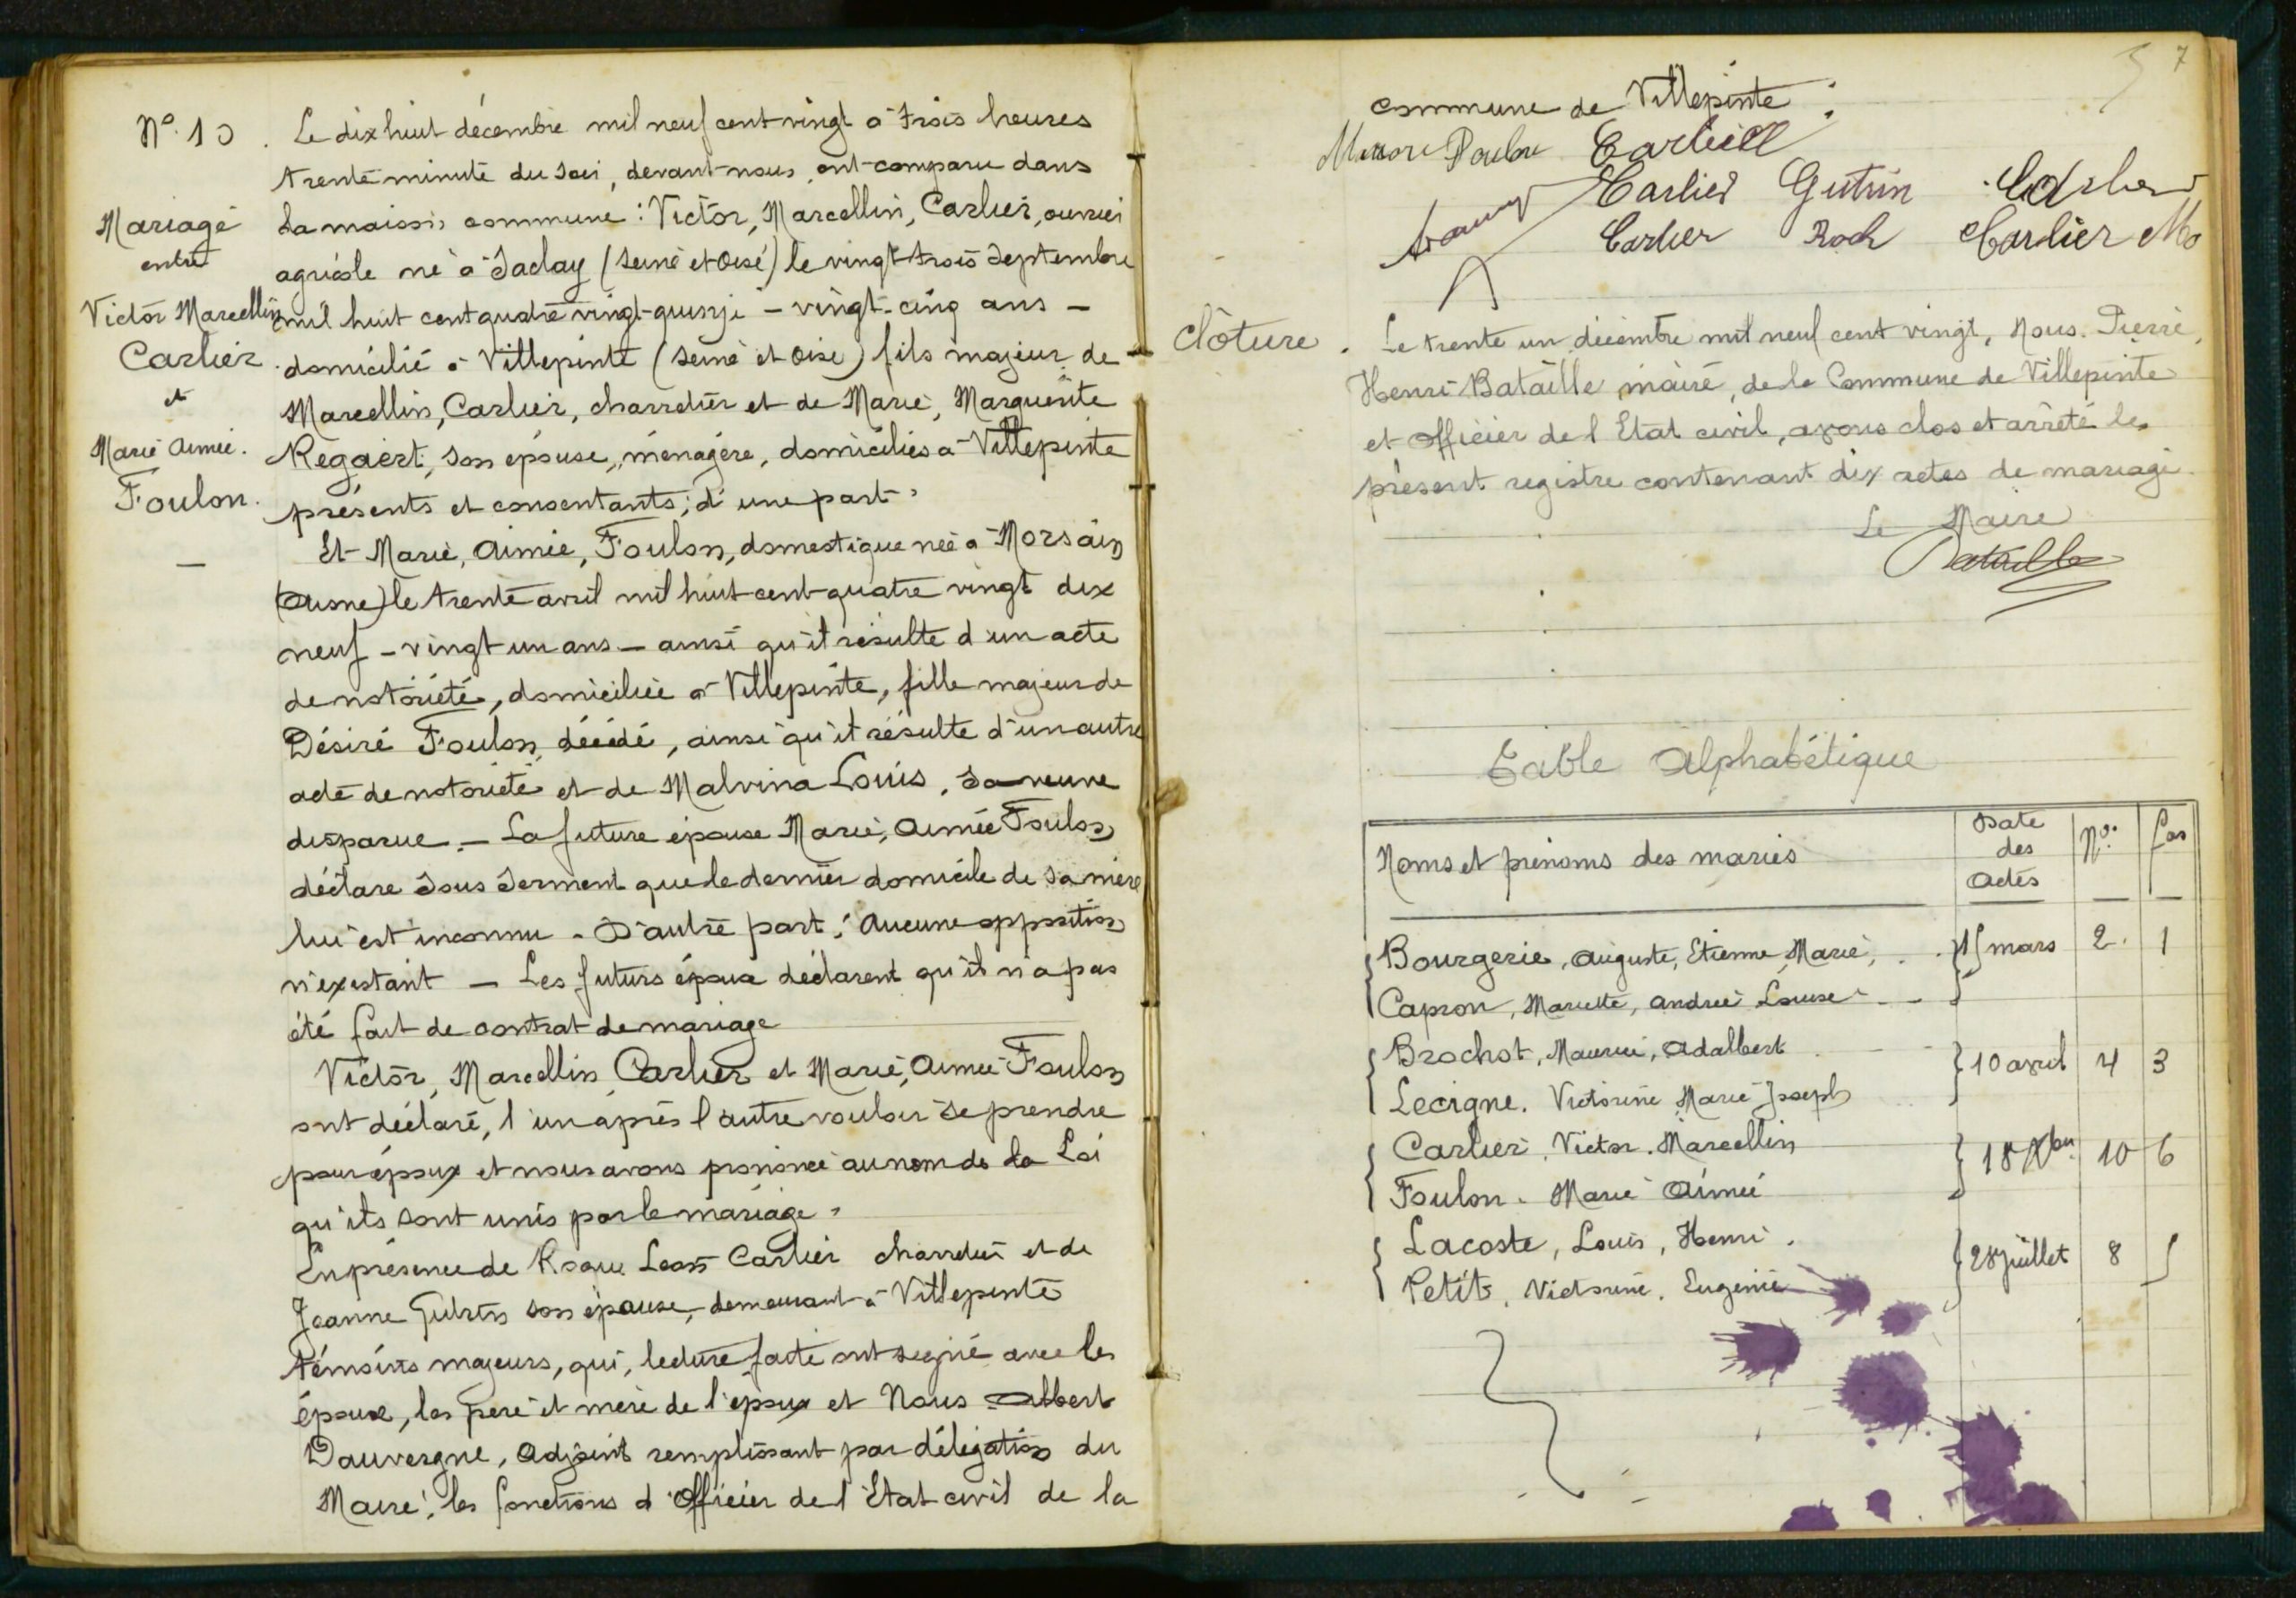 Nº. 10
Mariage
entre
Victor Marcellin
Carlier
et
Marie Aimée.
Foulon.
Le dix huit décembre mil neuf cent vingt à trois heures
trente minute du soir, devant nous, ont comparu dans
la maison commune : Victor, Marcellin, Carlier, ouvrier
agricole né à Saclay (Seine et Oise) le vingt trois Septembre
mil huit cent quatre vingt-quinze - vingt-cinq ans -
domicilié à Villepinte (Seine et Oise) fils majeur de
Marcellin, Carlier, charretier et de Marie, Marguerite
Regaert, son épouse, ménagère, domiciliés à Villepinte
présents et consentants ; d'une part.
Et Marie, Aimée, Foulon, domestique née à Morsain
(Aisne) le trente avril mil huit-cent-quatre vingt dix
neuf - vingt un ans - ainsi qu'il résulte d'un acte
de notoriété, domiciliée à Villepinte, fille majeur de
Désiré Foulon, décédé, ainsi qu'il résulte d'un autre
acte de notoriété et de Malvina Louis, sa veuve
disparue. - La future épouse Marie, Aimée Foulon
déclare sous serment que le dernier domicile de sa mère
lui est inconnu - D'autre part ; Aucune opposition
n'existant - Les futurs époux déclarent qu'il n'a pas
été fait de contrat de mariage
Victor, Marcellin Carlier et Marie, Aimée Foulon
ont déclaré, l'un après l'autre vouloir se prendre
pour époux et nous avons prononcé au nom de la Loi
qu'ils sont unis par le mariage.
En présence de Léon Carlier charretier et de
Jeanne Gutrin son épouse, demeurant à Villepinte
témoins majeurs, qui, lecture faite ont signé avec les
époux, les père et mère de l'époux et Nous Albert
Dauvergne, Adjoint remplissant par délégation du
Maire, les fonctions d'Officier de l'Etat civil de la
7
commune de Villepinte :
Foulon Carlier
Carlier Gutrin
Carlier Roch Carlier
Clôture. Le trente un décembre mil neuf cent vingt, Nous Pierre,
Henri Bataille maire, de la Commune de Villepinte
et Officier de l'Etat civil, avons clos et arrêté le
présent registre contenant dix actes de mariage
Le Maire
Bataille
Table Alphabétique
Noms et prénoms des mariés Date des Actes Nº. fos
Bourgerie, Auguste, Etienne, Marie, 15 mars 2 1
Capron, Mariette, Andrée Louise
Brochot, Maurice, Adalbert 10 avril 4 3
Lecigne. Victorine Marie Joseph
Carlier, Victor. Marcellin 18 Xbre 10 6
Foulon. Marie Aimée
Lacoste, Louis, Henri. 28 juillet 8 5
Petit, Victorine. Eugénie